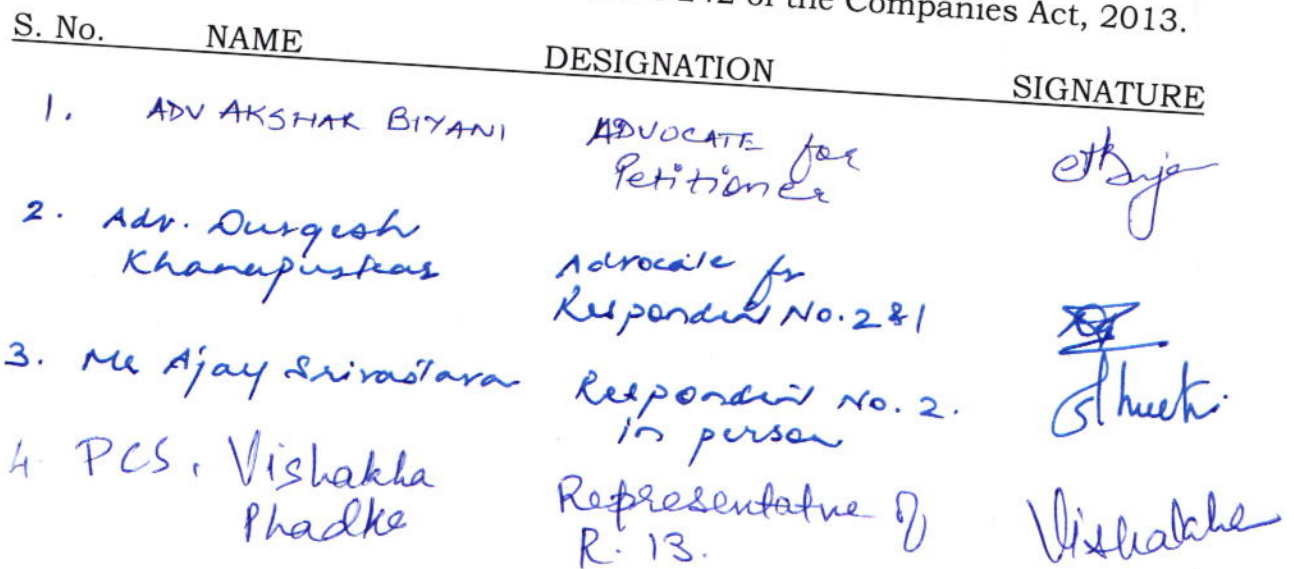 242 of the Companies Act, 2013.
S. No. NAME DESIGNATION SIGNATURE
1. ADV AKSHAR BIYANI ADVOCATE for
Petitioner
2. Adv. Durgesh
Khanapurkar Advocate for
Respondent No. 2 & 1
3. Mr Ajay Srivastava Respondent No. 2.
in person
4 PCS. Vishakha
Phadke Representative of
R. 13. Vishakha